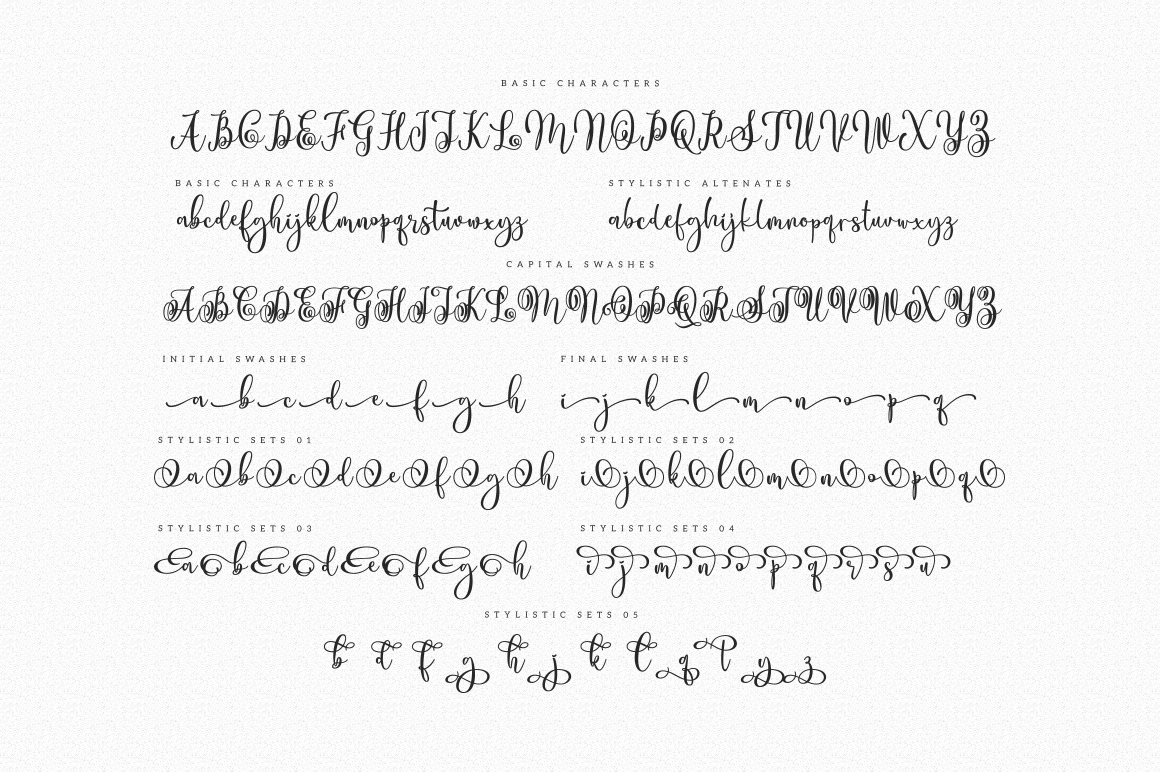 BASIC CHARACTERS
ABCDEFGHIJKLMNOPQRSTUVWXYZ
BASIC CHARACTERS
STYLISTIC ALTENATES
abcdefghijklmnopqrstuvwxyz
abcdefghijklmnopqrstuvwxyz
CAPITAL SWASHES
ABCDEFGHIJKLMNOPQRSTUVWXYZ
INITIAL SWASHES
FINAL SWASHES
a b c d e f g h
i j k l m n o p q
STYLISTIC SETS 01
STYLISTIC SETS 02
a b c d e f g h
i j k l m n o p q
STYLISTIC SETS 03
STYLISTIC SETS 04
a b c d e f g h
i j m n o p q r s u
STYLISTIC SETS 05
b d f g h j k l q t y z